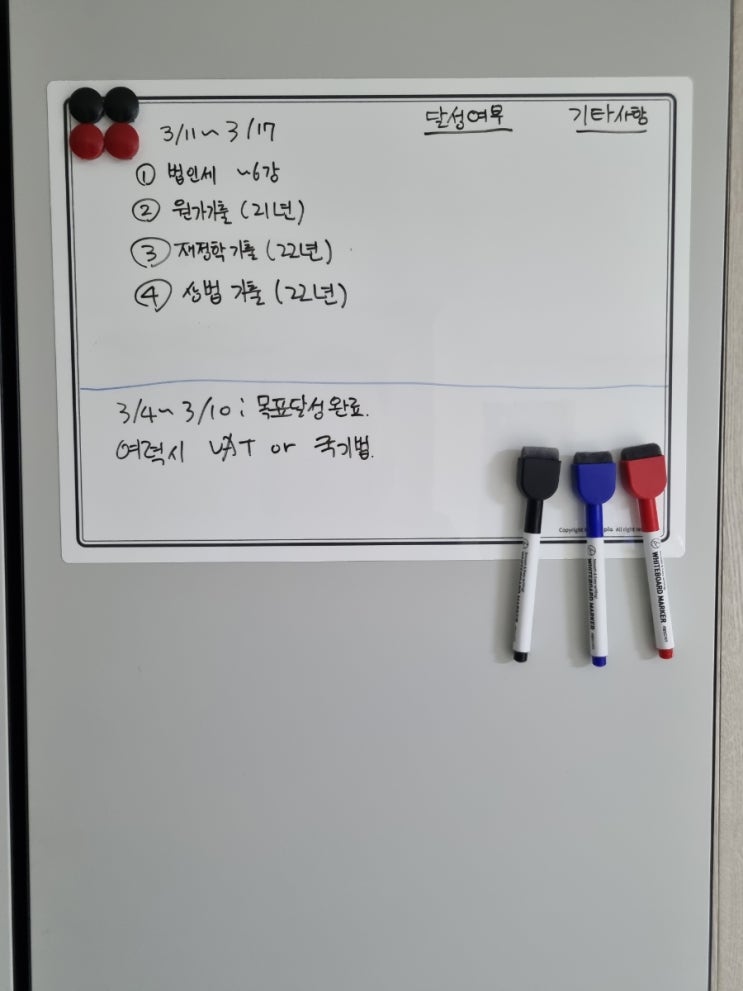 3/11~3/17 달성여부 기타사항
① 법인세 ~6강
② 원가기출 (21년)
③ 재정학기출 (22년)
④ 상법 기출 (22년)
3/4~3/10 : 목표달성완료.
여력시 VAT or 국기법.
Copyright
All right
WHITEBOARD MARKER
WHITEBOARD MARKER
WHITEBOARD MARKER